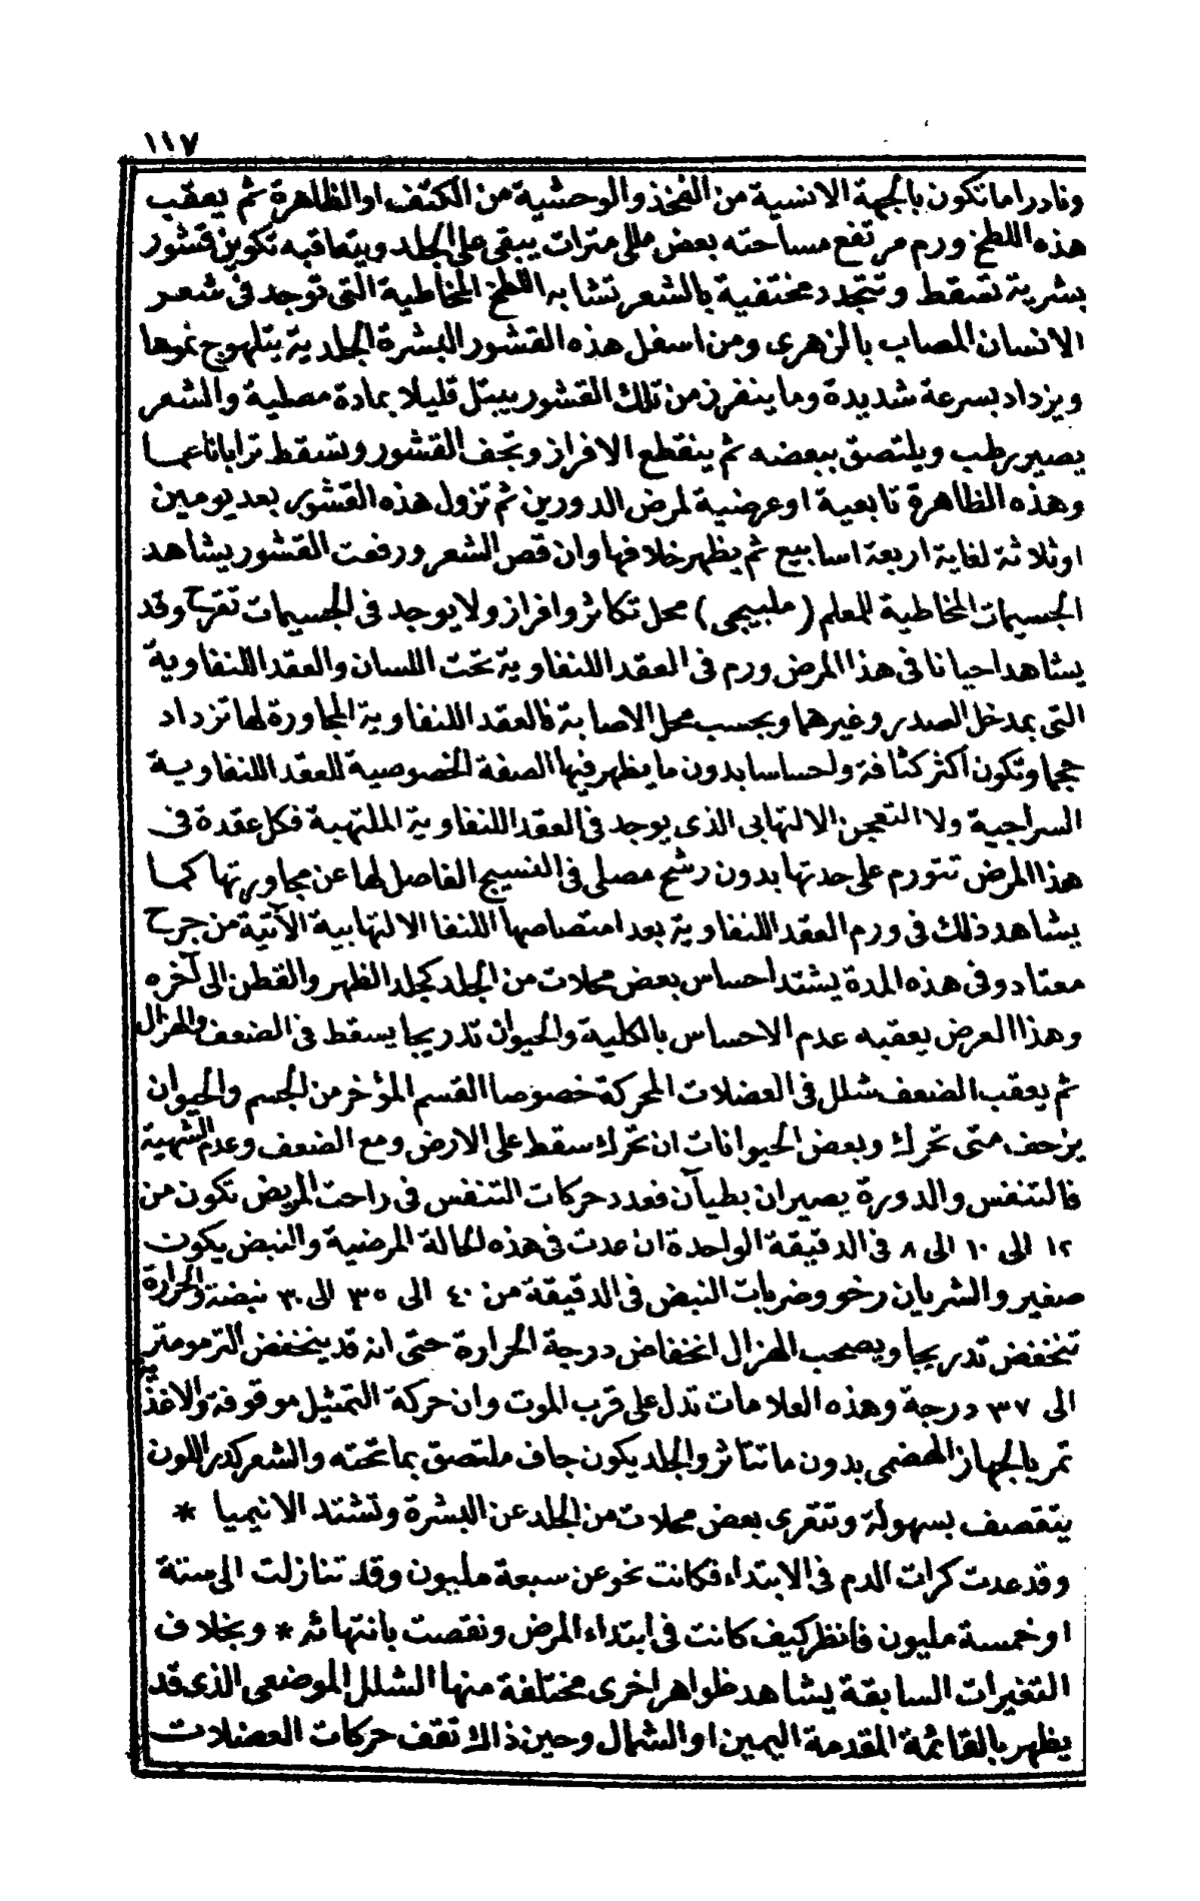 ١١٧
ونادرا ما تكون بالجهة الانسية من الفخذ والوحشية من الكتف او الظاهرة ثم يعقب
هذه اللطخ ورم مرتفع مساحته بعض مللي مترات يبقى على الجلد ويتعاقبه تكوين قشور
بشرية تسقط وتتجدد مختفية بالشعر تشابه اللطخ المخاطية التى توجد فى شعر
الانسان المصاب بالزهرى ومن اسفل هذه القشور البشرة الجلدية يتلهوج نموها
ويزداد بسرعة شديدة وما ينفرز من تلك القشور يبتل قليلا بمادة مصلية والشعر
يصير رطب ويلتصق ببعضه ثم ينقطع الافراز وتجف القشور وتسقط ترابا ناعما
وهذه الظاهرة تابعية او عرضية لمرض الدورين ثم تزول هذه القشور بعد يومين
او ثلاثة لغاية اربعة اسابيع ثم يظهر خلافها وان قص الشعر ورفعت القشور يشاهد
الجسيمات المخاطية للمعلم (ملبيجى) محل تكاثر وافراز ولا يوجد فى الجسيمات تقرح وقد
يشاهد احيانا فى هذا المرض ورم فى العقد اللنفاوية تحت اللسان والعقد اللنفاوية
التى بمدخل الصدر وغيرهما وبحسب محل الاصابة فالعقد اللنفاوية المجاورة لها تزداد
حجما وتكون اكثر كثافة واحساسا بدون ما يظهر فيها الصفة الخصوصية للعقد اللنفاوية
السراجية ولا التعجن الالتهابى الذى يوجد فى العقد اللنفاوية الملتهبة فكل عقدة فى
هذا المرض تتورم على حدتها بدون رشح مصلى فى النسيج الفاصل لها عن مجاورتها كما
يشاهد ذلك فى ورم العقد اللنفاوية بعد امتصاصها اللنفا الالتهابية الآتية من جرح
معتاد وفى هذه المدة يشتد احساس بعض محلات من الجلد كجلد الظهر والقطن الى آخره
وهذا العرض يعقبه عدم الاحساس بالكلية والحيوان تدريجا يسقط فى الضعف والهزال
ثم يعقب الضعف شلل فى العضلات المحركة خصوصا القسم المؤخر من الجسم والحيوان
يزحف متى تحرك وبعض الحيوانات ان تحرك سقط على الارض ومع الضعف وعدم الشهية
فالتنفس والدورة يصيران بطيآن فعدد حركات التنفس فى راحت المريض تكون من
١٢ الى ١٠ الى ٨ فى الدقيقة الواحدة ان عدت فى هذه الحالة المرضية والنبض يكون
صغير والشريان رخو وضربات النبض فى الدقيقة من ٤٠ الى ٣٥ الى ٣٠ نبضة والحرارة
تنخفض تدريجا ويصحب الهزال انخفاض درجة الحرارة حتى انه قد ينخفض الترمومتر
الى ٣٧ درجة وهذه العلامات تدل على قرب الموت وان حركة التمثيل موقوفة والاغذية
تمر بالجهاز الهضمى بدون ما تتاثر والجلد يكون جاف ملتصق بما تحته والشعر كدر اللون
يتقصف بسهولة وتتعرى بعض محلات من الجلد عن البشرة وتشتد الانيميا *
وقد عدت كرات الدم فى الابتداء فكانت نحو عن سبعة مليون وقد تنازلت الى ستة
او خمسة مليون فانظر كيف كانت فى ابتداء المرض ونقصت بانتهائه * وبخلاف
التغيرات السابقة يشاهد ظواهر اخرى مختلفة منها الشلل الموضعى الذى قد
يظهر بالقائمة المقدمة اليمين او الشمال وحين ذاك تقف حركات العضلات